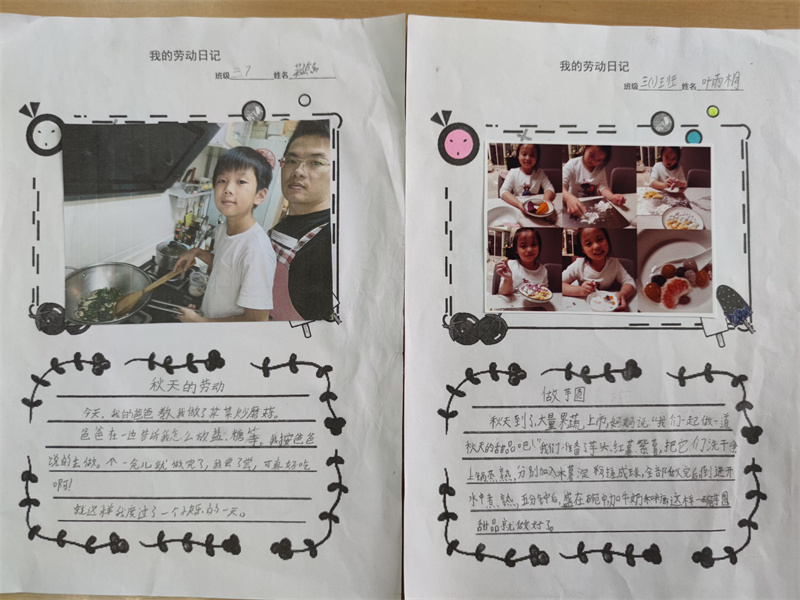 我的劳动日记
班级 三7 姓名
秋天的劳动
今天,我的爸爸教我做了菜菜炒蘑菇。
爸爸在一边告诉我怎么放盐、糖等,我按爸爸
说的去做。不一会儿就做完了,我尝了尝,可真好吃
啊!
就这样我度过了一个快乐的一天。
我的劳动日记
班级 三(1)班 姓名 叶雨桐
做芋圆
秋天到了,大量果蔬上市,妈妈说“我们一起做一道
秋天的甜品吧!”我们准备了芋头、红薯、紫薯,把它们洗干净
上锅蒸熟,分别加入木薯淀粉搓成球,全部做完后倒进开
水中煮熟,五分钟后,盛在碗中加牛奶和这样一碗芋圆
甜品就做好了。